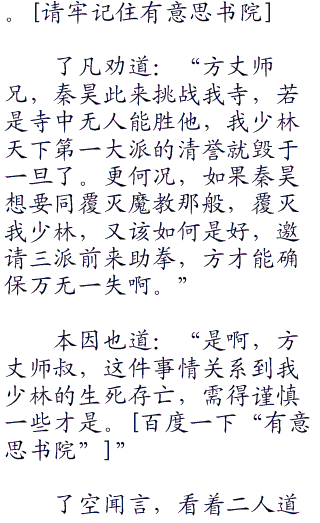 。[请牢记住有意思书院]
了凡劝道：“方丈师
兄，秦昊此来挑战我寺，若
是寺中无人能胜他，我少林
天下第一大派的清誉就毁于
一旦了。更何况，如果秦昊
想要同覆灭魔教那般，覆灭
我少林，又该如何是好，邀
请三派前来助拳，方才能确
保万无一失啊。”
本因也道：“是啊，方
丈师叔，这件事情关系到我
少林的生死存亡，需得谨慎
一些才是。[百度一下“有意
思书院”]”
了空闻言，看着二人道